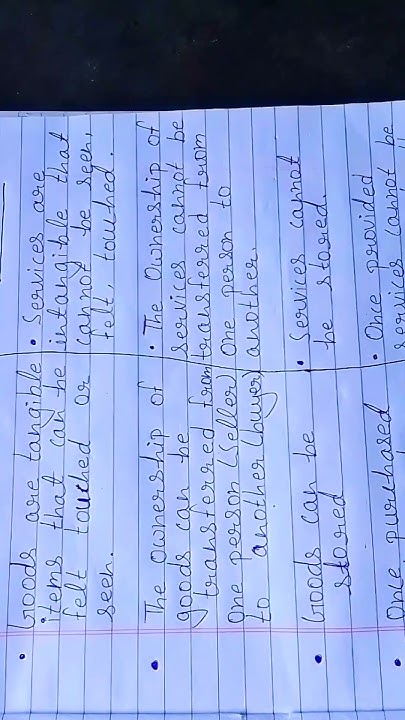 • Goods are tangible
items that can be
felt touched or
seen.
• The ownership of
goods can be
transferred from
one person (seller)
to another (buyer)
• Goods can be
stored
• Once purchased
• Services are
intangible that
cannot be seen,
felt, touched.
• The Ownership of
services cannot be
transferred from
One person to
another.
• Services cannot
be stored.
• Once provided
services cannot be